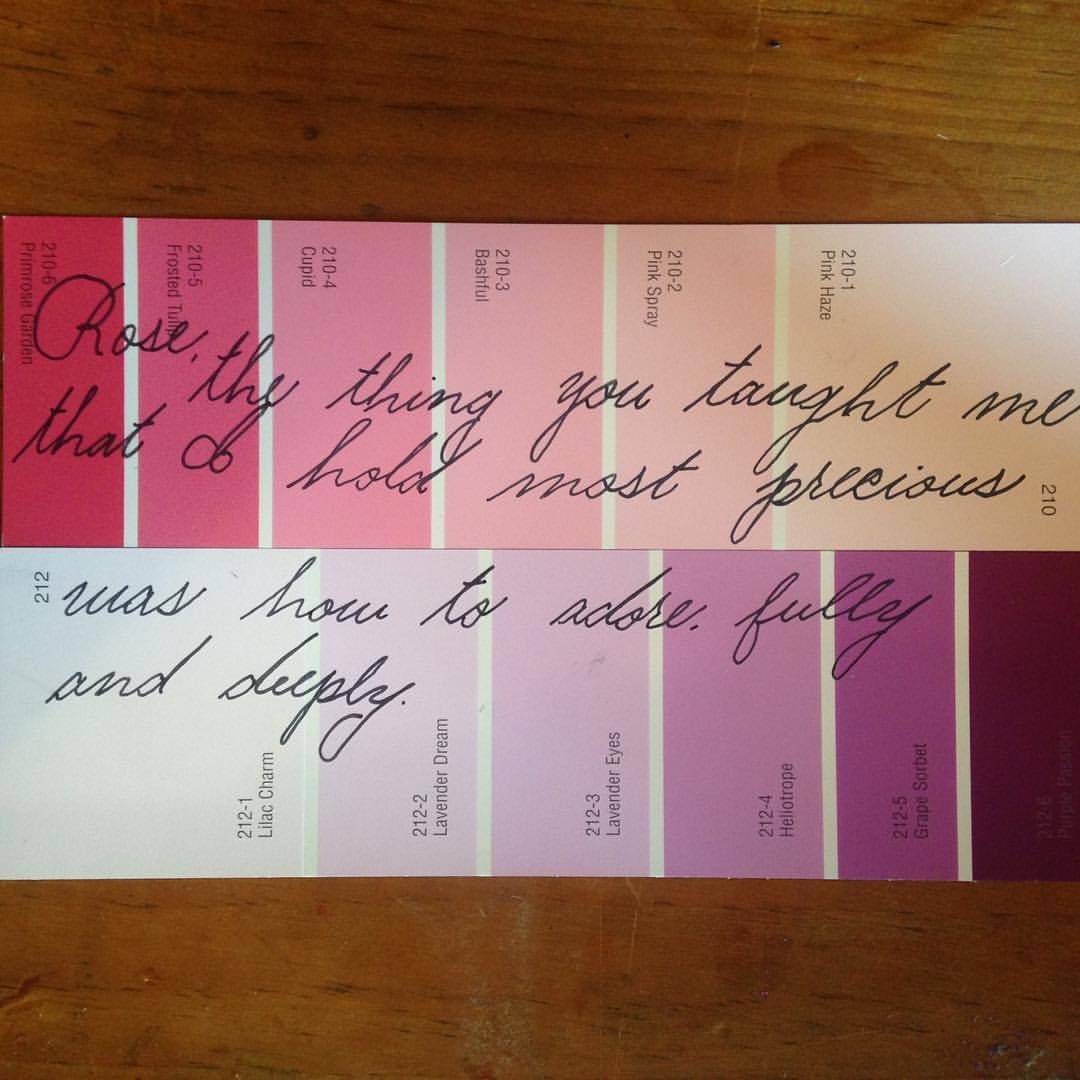 210-6
Primrose Garden
210-5
Frosted Tulip
210-4
Cupid
210-3
Bashful
210-2
Pink Spray
210-1
Pink Haze
Rose, the thing you taught me
that I hold most precious
210
212
was how to adore. fully
and deeply.
212-1
Lilac Charm
212-2
Lavender Dream
212-3
Lavender Eyes
212-4
Heliotrope
212-5
Grape Sorbet
212-6
Purple Passion